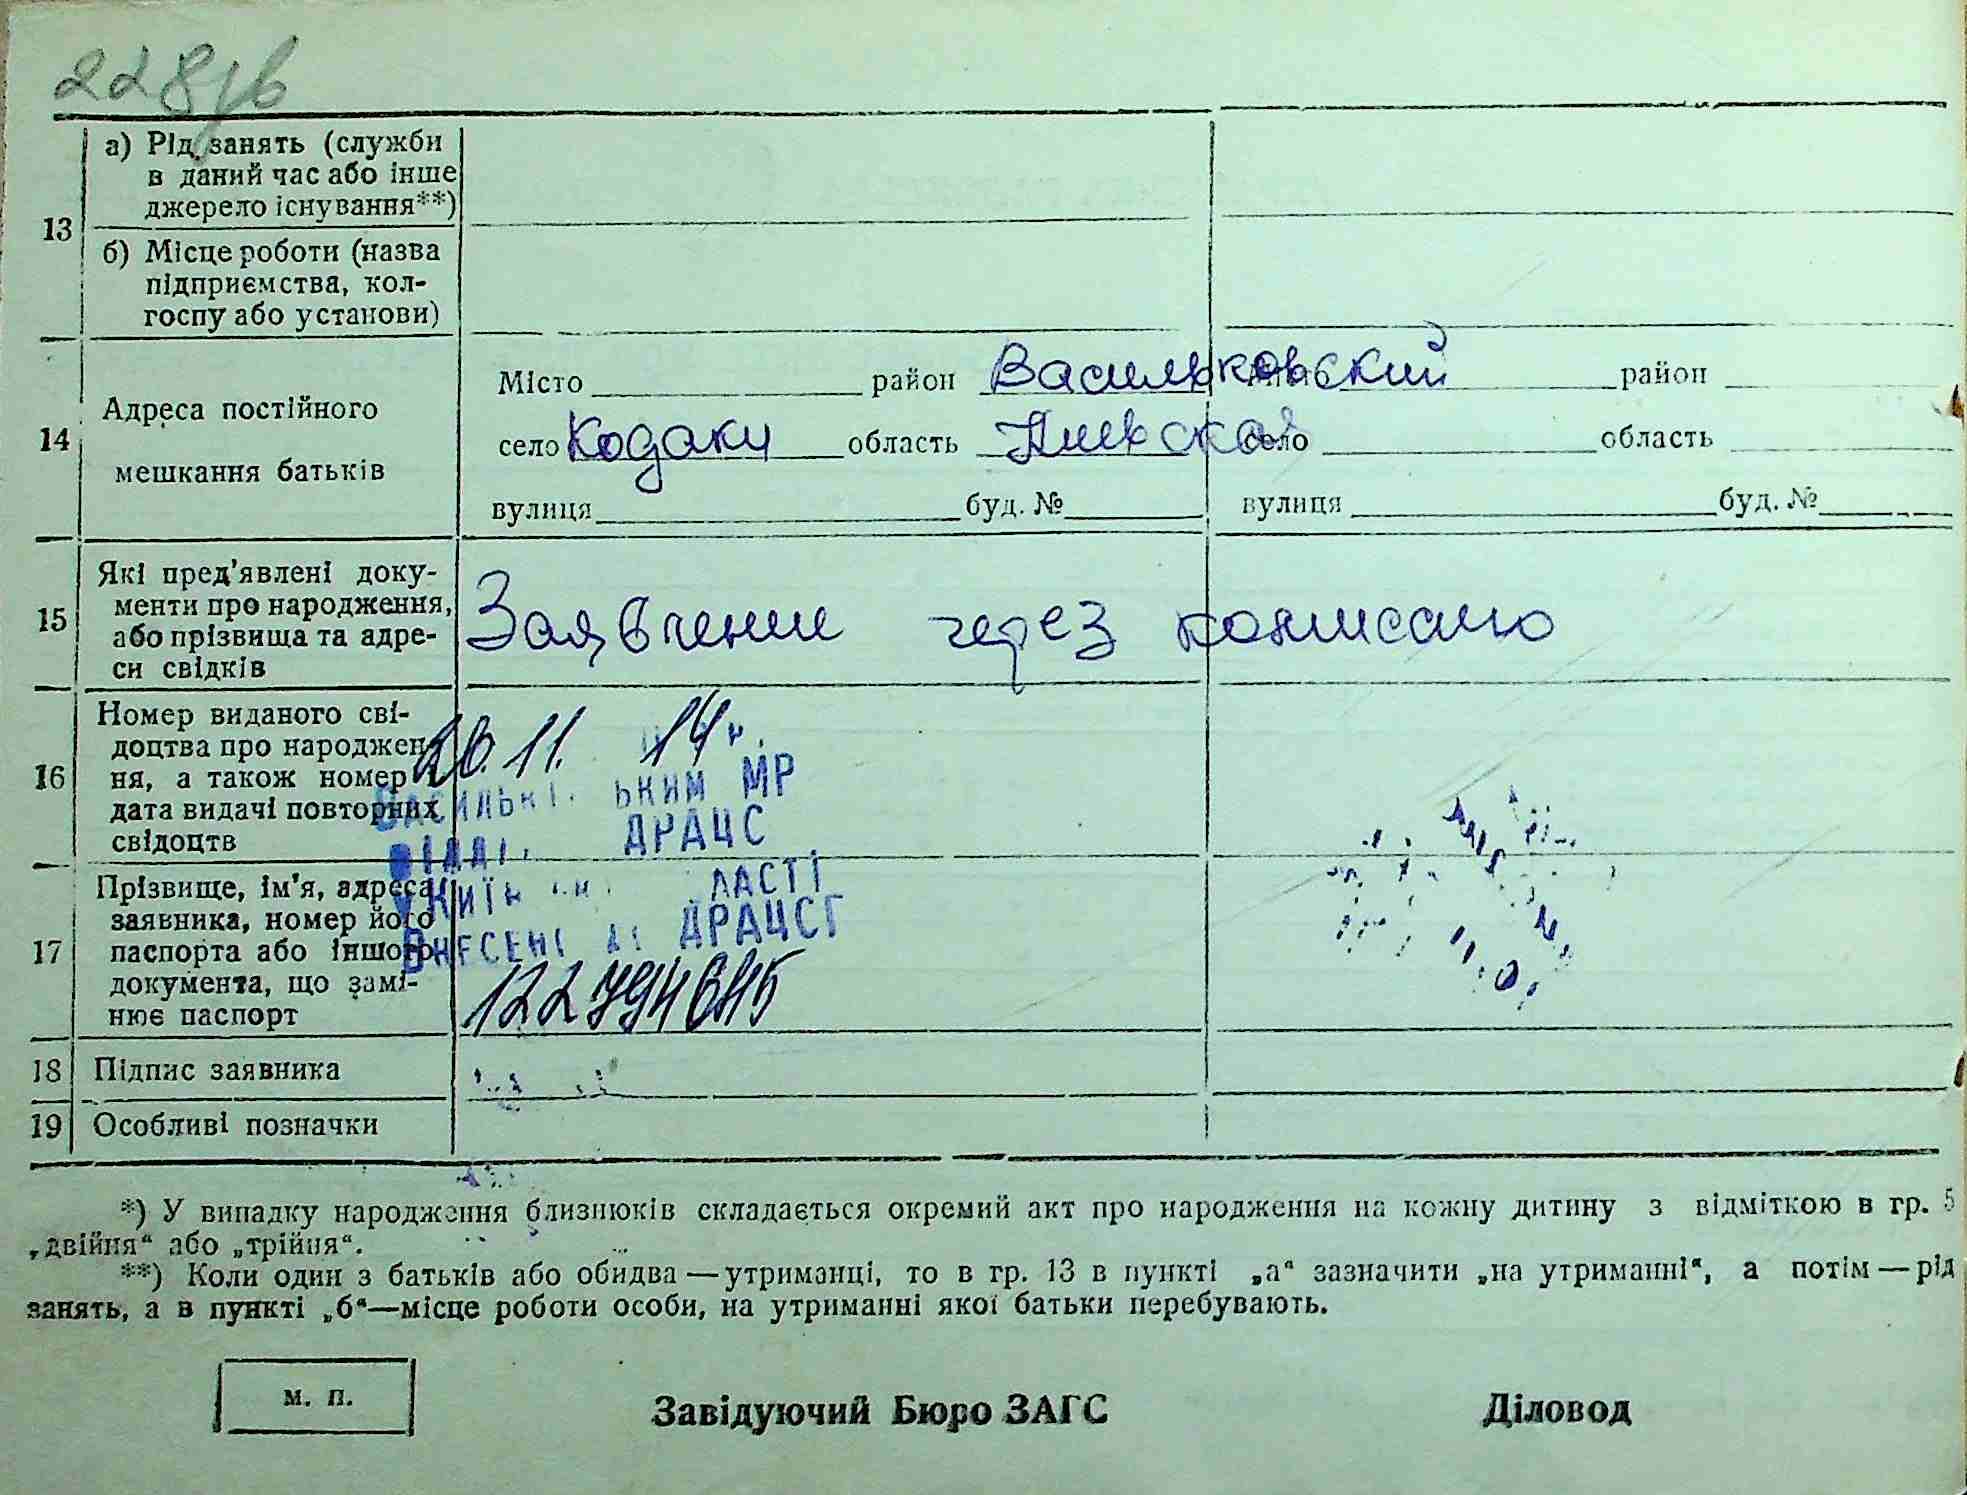 13
а) Рід занять (служби
в даний час або інше
джерело існування**)
б) Місце роботи (назва
підприємства, кол-
госпу або установи)
14
Адреса постійного
мешкання батьків
Місто район Васильковский Місто район
село Кодаки область Киевская село область
вулиця буд. № вулиця буд. №
15
Які пред'явлені доку-
менти про народження,
або прізвища та адре-
си свідків
Заявление через комиссию
16
Номер виданого сві-
доцтва про народжен-
ня, а також номер і
дата видачі повторних
свідоцтв
20.11. 14
ьким МР
ДРАЦС
17
Прізвище, ім'я, адреса
заявника, номер його
паспорта або іншого
документа, що замі-
нює паспорт
ДРАЦСГ
18 Підпис заявника
19 Особливі позначки
*) У випадку народження близнюків складається окремий акт про народження на кожну дитину з відміткою в гр. 5
„двійня“ або „трійня“.
**) Коли один з батьків або обидва — утриманці, то в гр. 13 в пункті „а“ зазначити „на утриманні“, а потім — рід
занять, а в пункті „б“—місце роботи особи, на утриманні якої батьки перебувають.
м. п. Завідуючий Бюро ЗАГС Діловод